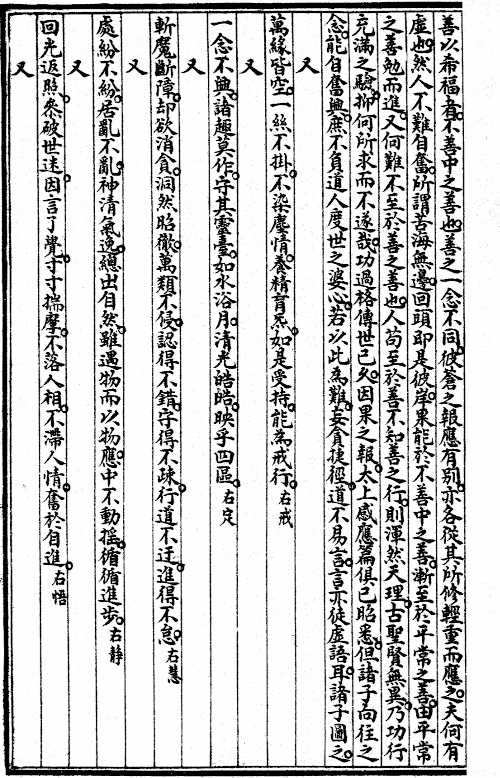 善以希福者不善中之善也善之一念不同彼蒼之報應有別亦各從其所修輕重而應之夫何有
虛也然人不難自奮所謂苦海無邊回頭即是彼岸果能於不善中之善漸至於平常之善由平常
之善勉而進又何難不至於善之善也人苟至於善不知善之行則渾然天理古聖賢無異乃功行
充滿之驗抑何所求而不遂哉功過格傳世已久因果之報太上感應篇俱已昭悉但諸子向往之
念能自奮興庶不負道人度世之婆心若以此為難妄貪捷徑道不易言言亦徒虛語耳諸子圖之
又
萬緣皆空一絲不掛不染塵情養精育炁如是受持能為戒行右戒
又
一念不興諸趣莫作守其靈臺如水浴月清光皓皓映乎四區右定
又
斬魔斷障却欲消貪洞然昭徹萬類不侵認得不錯守得不疎行道不迂進得不怠右慧
又
處紛不紛居亂不亂神清氣逸總出自然雖遇物而以物應中不動搖循循進步右靜
又
回光返照叅破世迷因言了覺寸寸揣摩不落人相不滯人情奮於自進右悟
又